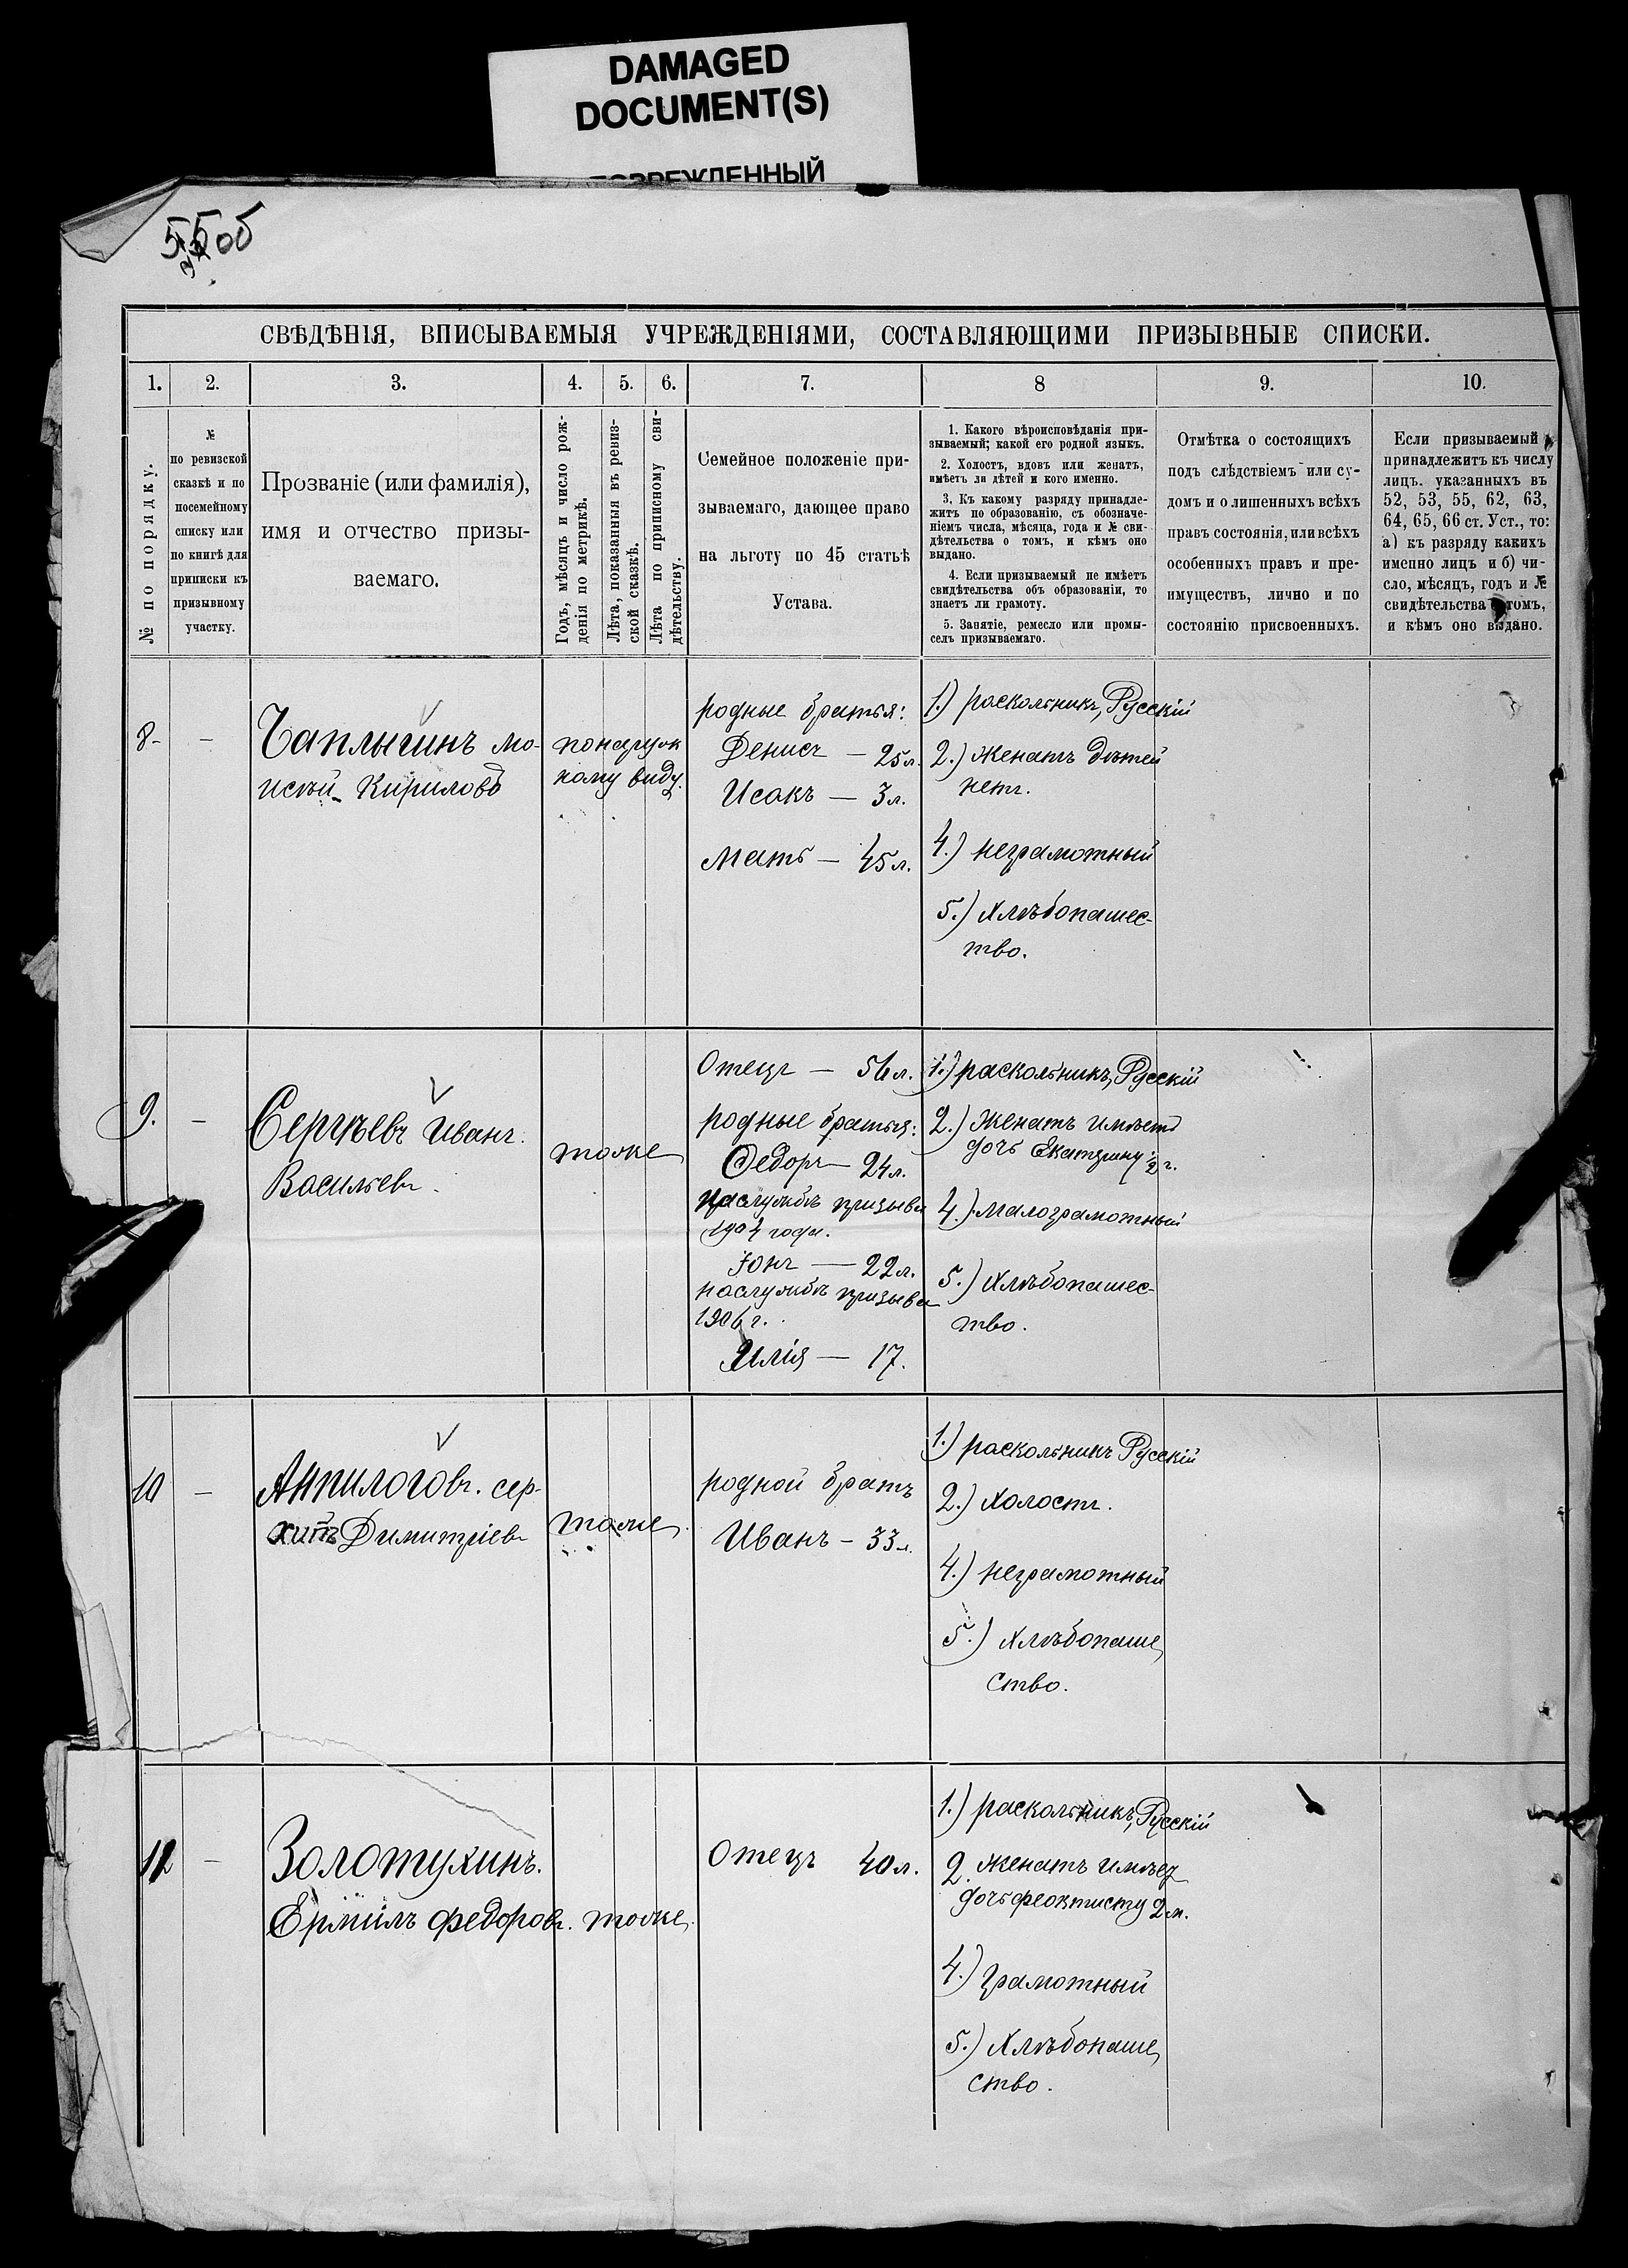 DAMAGED
DOCUMENT(S)
55об
СВѢДѢНІЯ, ВПИСЫВАЕМЫЯ УЧРЕЖДЕНІЯМИ, СОСТАВЛЯЮЩИМИ ПРИЗЫВНЫЕ СПИСКИ.
1. 2. 3. 4. 5. 6. 7. 8 9. 10.
№ по порядку.
№
по ревизской
сказкѣ и по
посемейному
списку или
по книгѣ для
приписки къ
призывному
участку.
Прозваніе (или фамилія),
имя и отчество призы-
ваемаго.
Годъ, мѣсяцъ и число рож-
денія по метрикѣ.
Лѣта, показанныя въ ревиз-
ской сказкѣ.
Лѣта по приписному сви-
дѣтельству.
Семейное положеніе при-
зываемаго, дающее право
на льготу по 45 статьѣ
Устава.
1. Какого вѣроисповѣданія при-
зываемый; какой его родной языкъ.
2. Холостъ, вдовъ или женатъ,
имѣетъ ли дѣтей и кого именно.
3. Къ какому разряду принадле-
житъ по образованію, съ обозначе-
ніемъ числа, мѣсяца, года и № сви-
дѣтельства о томъ, и кѣмъ оно
выдано.
4. Если призываемый не имѣетъ
свидѣтельства объ образованіи, то
знаетъ ли грамоту.
5. Занятіе, ремесло или промы-
селъ призываемаго.
Отмѣтка о состоящихъ
подъ слѣдствіемъ или су-
домъ и о лишенныхъ всѣхъ
правъ состоянія, или всѣхъ
особенныхъ правъ и пре-
имуществъ, лично и по
состоянію присвоенныхъ.
Если призываемый
принадлежитъ къ числу
лицъ, указанныхъ въ
52, 53, 55, 62, 63,
64, 65, 66 ст. Уст., то:
а) къ разряду какихъ
именно лицъ и б) чи-
сло, мѣсяцъ, годъ и №
свидѣтельства о томъ,
и кѣмъ оно выдано.
8 -
Чаплыгинъ Мо-
исѣй Кириловъ
понаруж
ному виду.
родные братья:
Денисъ — 25 л.
Исакъ — 3 л.
Мать — 45 л.
1.) раскольникъ, Русскій
2.) Женатъ дѣтей
нетъ.
4.) неграмотный
5.) Хлѣбопашес-
тво.
9. -
Сергѣевъ Иванъ
Васильевъ.
тоже
Отецъ — 56 л.
родные братья:
Федоръ — 24 л.
на службѣ призыва
1904 года.
Іонъ — 22 л.
на службѣ призыва
1906 г.
Илія — 17.
1.) раскольникъ, Русскій
2.) Женатъ имѣетъ
дочь Екатерину ½ г.
4.) Малограмотный
5.) Хлѣбопашес-
тво.
10 -
Анпилоговъ. Сер-
Димитріевъ
тоже
родной братъ
Иванъ - 33 л.
1.) раскольникъ Русскій
2.) Холостъ.
4.) неграмотный
5.) Хлѣбопаше
ство.
12 -
Золотухинъ.
Ермилъ Федоровъ.
тоже.
Отецъ 40 л.
1.) раскольникъ, Русскій
2. Женатъ имѣет
дочь Феоктисту 2 м.
4.) грамотный
5.) Хлѣбопаше
ство.